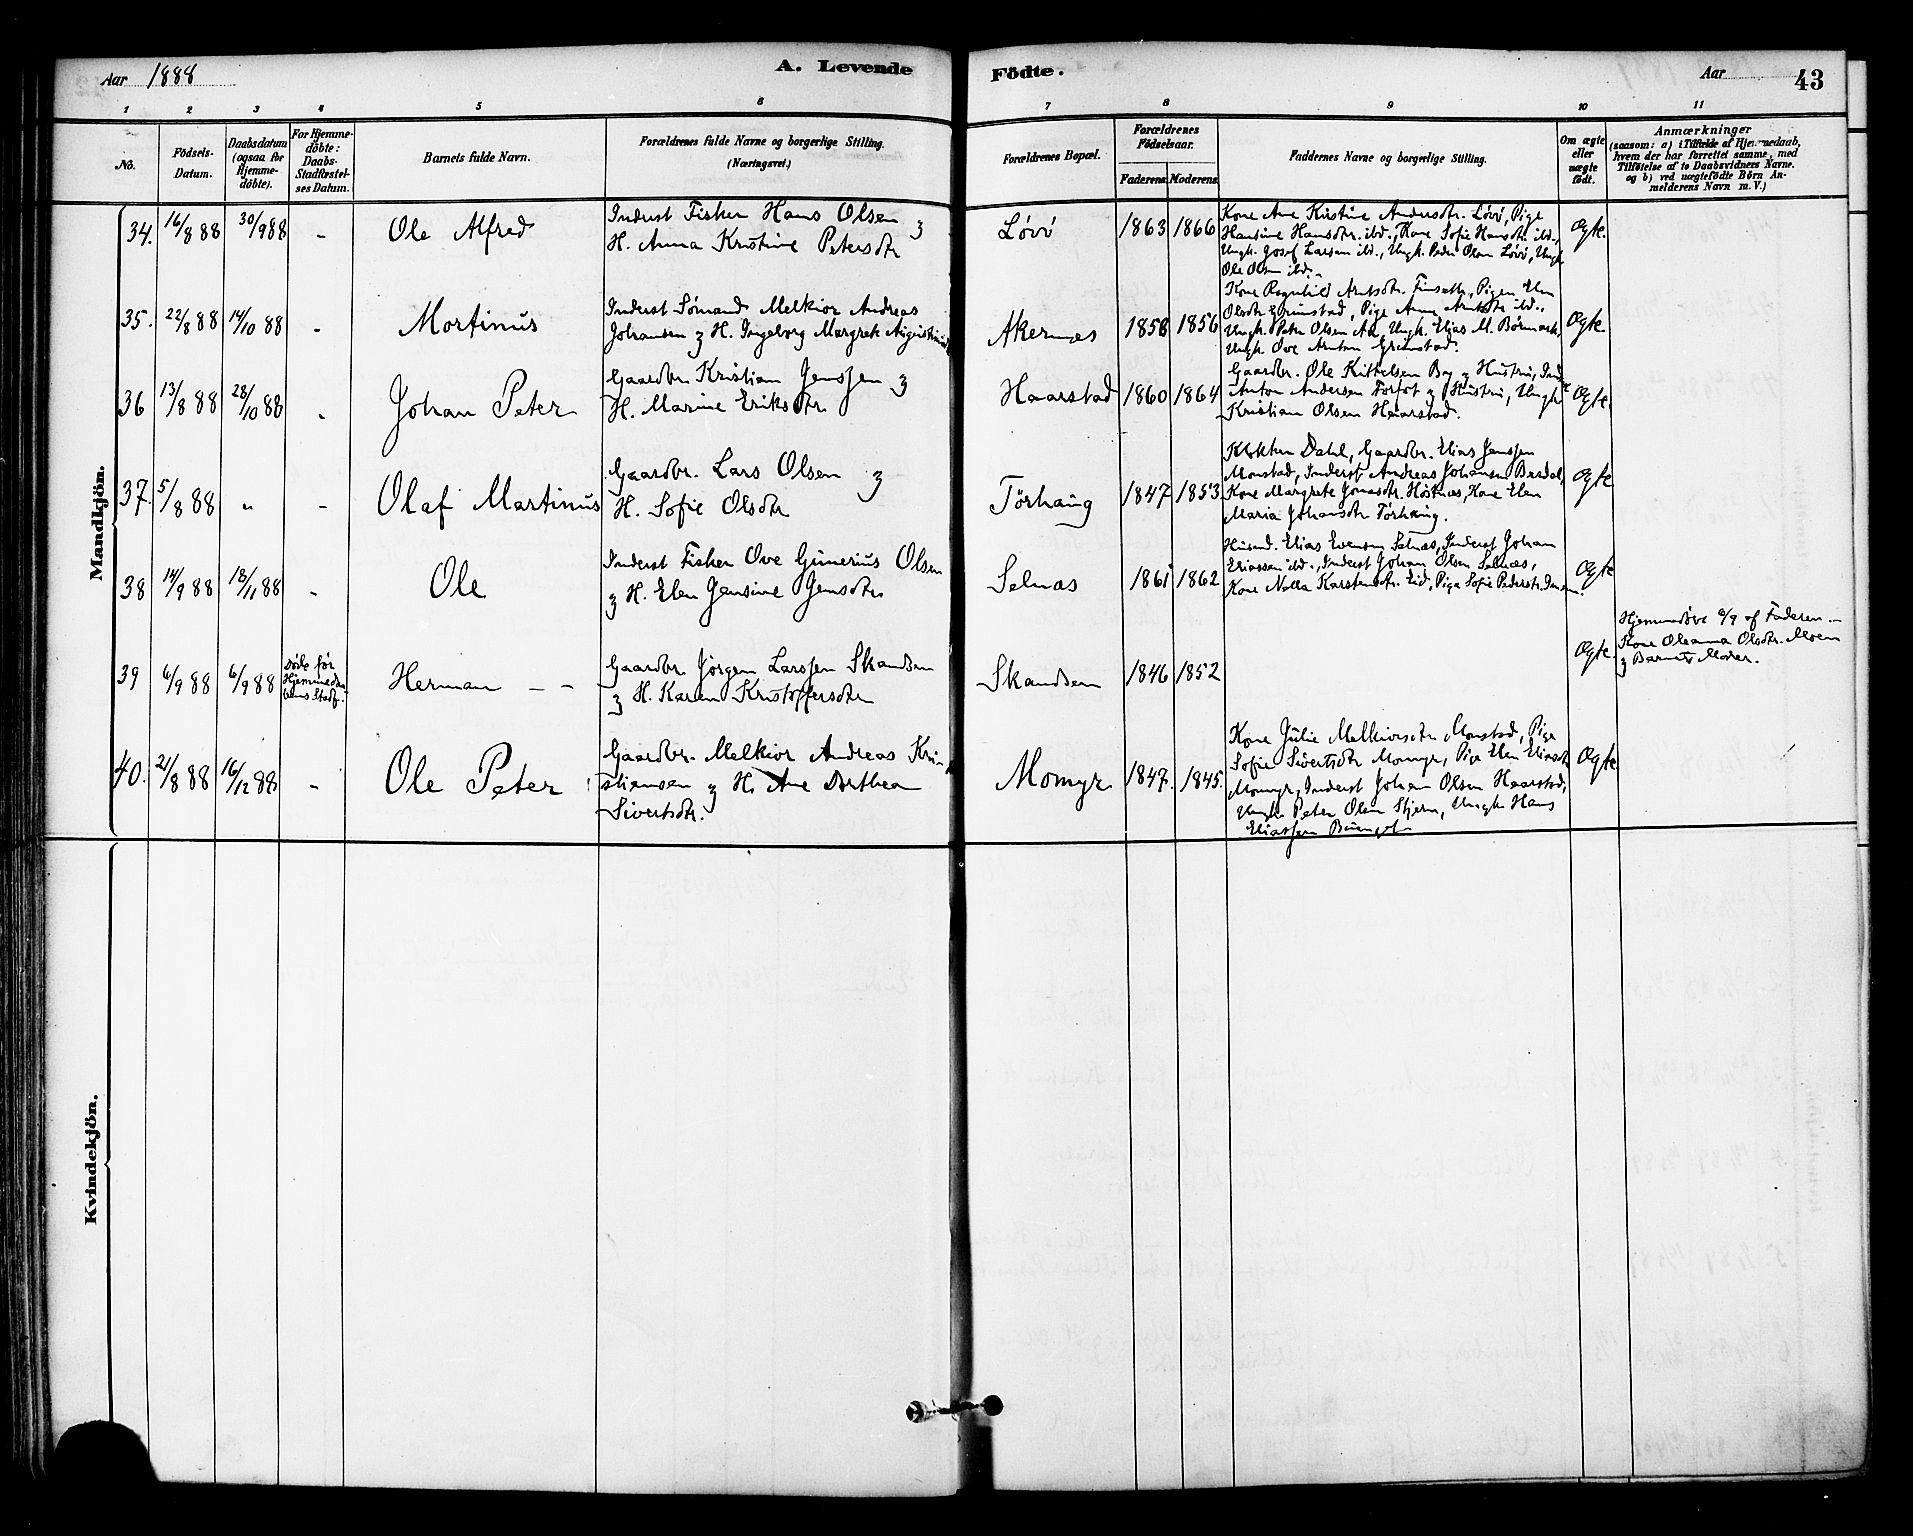 Aar 1888
A. Levende Födte.
Aar
43
1 2 3 4 5 6 7 8 9 10 11
No.
Födsels-Datum.
Daabsdatum (ogsaa for Hjemme-döbte).
For Hjemme-döbte: Daabs-Stadfæstel-ses Datum.
Barnets fulde Navn.
Forældrenes fulde Navne og borgerlige Stilling.
(Næringsvei.)
Forældrenes Bopæl.
Forældrenes Födselsaar.
Faderens Moderens
Faddernes Navne og borgerlige Stilling.
Om ægte eller uægte födt.
Anmærkninger
(saasom: a) i Tilfælde af Hjemmedaab,
hvem der har forrettet samme, med
Tilföielse af to Daabsvidners Navne,
og b) ved uægtefödte Börn An-
melderens Navn m. V.)
Mandkjön.
34. 16/8 88 30/9 88 - Ole Alfred
Inderst Fisker Hans Olsen og
H. Anna Kristine Petersdtr
Løvø 1863 1866
Kone Ane Kirstine Andersdtr. Løvø, Pige
Hansine Hansdtr. ibd., Kone Sofie Hansdtr ibd.,
Ungk. Josef Larsen ibd., Ungk. Peder Olsen Løvø, Ungk
Ole Olsen ibd.
Ægte.
35. 22/8 88 14/10 88 - Mortinus
Inderst Sømand Melkior Andreas
Johansen og H. Ingeborg Margrete
Akernes 1858 1856
Kone Ragnhild Arntsdtr. Finseth, Pigen Elen
Olsdtr Grimstad, Pige Anne Arntsdtr ibd.,
Ungk. Peter Olsen Ak, Ungk. Elias M. Børmark,
Ungk Ove Arntsen Grimstad.
Ægte.
36 13/8 88 28/10 88 - Johan Peter
Gaardbr. Kristian Jenssen og
H. Marine Eriksdtr
Haarstad 1860 1864
Gaardbr. Ole Kittelsen By og Hustru, Inds
Anton Andersen Torfot og Hustru, Ungk
Kristian Olsen Haarstad.
Ægte.
37. 5/8 88 " - Olaf Martinus
Gaardbr. Lars Olsen og
H. Sofie Olsdtr
Tørhaug 1847 1853
Klokker Dahl, Gaardbr. Elias Jenssen
Monstad, Inderst Andreas Johansen
Kone Margrete Jonasdtr. Høstnes, Kone Elen
Maria Johansdtr Tørhaug.
Ægte
38 14/9 88 18/11 88 - Ole
Inderst Fisker Ove Gunerius Olsen
og H. Elen Jensine Jensdtr
Selnæs 1861 1862
Husmd. Elias Evensen Selnæs, Inderst Johan
Eliassen ibd., Inderst Johan Olsen Selnæs,
Kone Nella Karstensdtr. Eid, Pige Sofie Pedersdtr.
Ægte
39 6/9 88 6/9 88
Døde før
Herman - -
Gaardbr. Jörgen Larssen Skandsen
og H. Karen Kristoffersdtr
Skandsen 1846 1852
Ægte.
Hjemmedøbt 6/9 af Faderen -
Kone Oleanna Olsdtr. Moen
og Barnets Moder.
40. 21/8 88 16/12 88 - Ole Peter
Gaardbr. Melkior Andreas Kri-
stiansen og H. Ane Dorthea
Sivertsdtr.
Momyr 1847. 1845.
Kone Julie Melkiorsdtr Monstad, Pige
Sofie Sivertsdtr Momyr, Pige Elen Eliasdtr
Momyr, Inderst Johan Olsen Haarstad,
Ungk Peter Olsen Stjern, Ungk Hans
Eliassen
Ægte.
Kvindekjön.